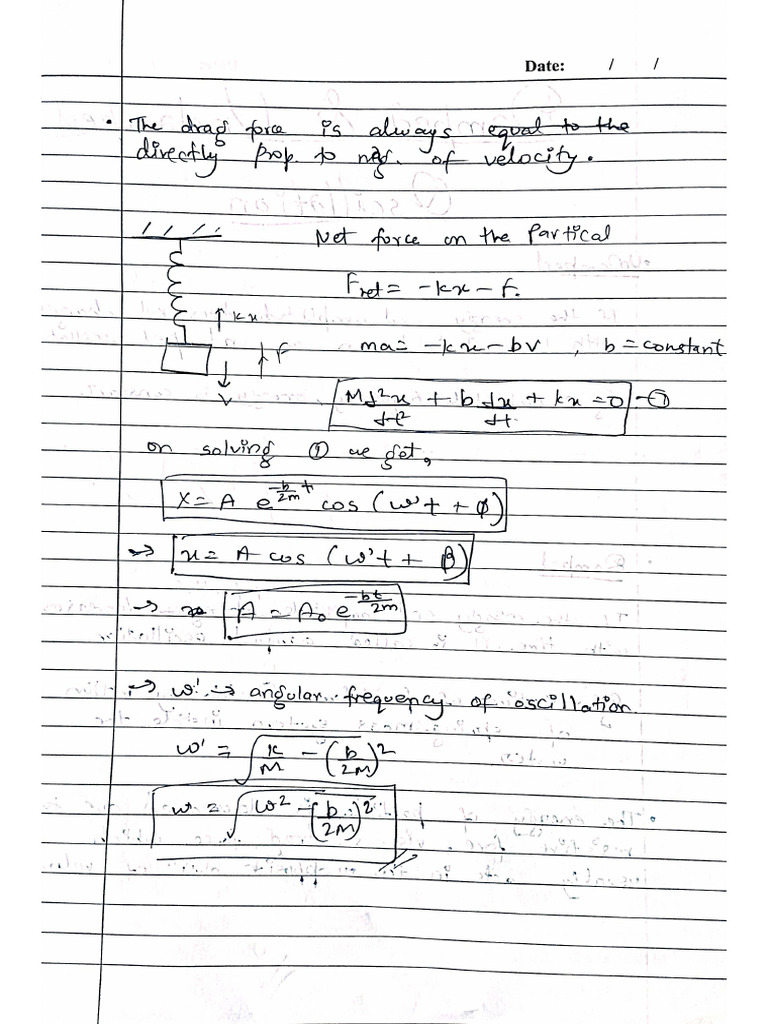 Date: / /
• The drag force is always ~~equal to the~~
directly prop. to mag. of velocity.
Net force on the Partical
Fnet = -kx - f.
↑ kx
↑ F
ma = -kx - bv , b = constant
v
Md²x/dt² + b dx/dt + kx = 0 -①
on solving ① we get,
X = A e^(-b/2m t) cos (w't + φ)
→ x = A cos (w't + β)
→ A = A₀ e^(-bt/2m)
→ w' → angular frequency of oscillation
w' = √(k/M - (b/2M)²)
w = √(w² - (b/2M)²)